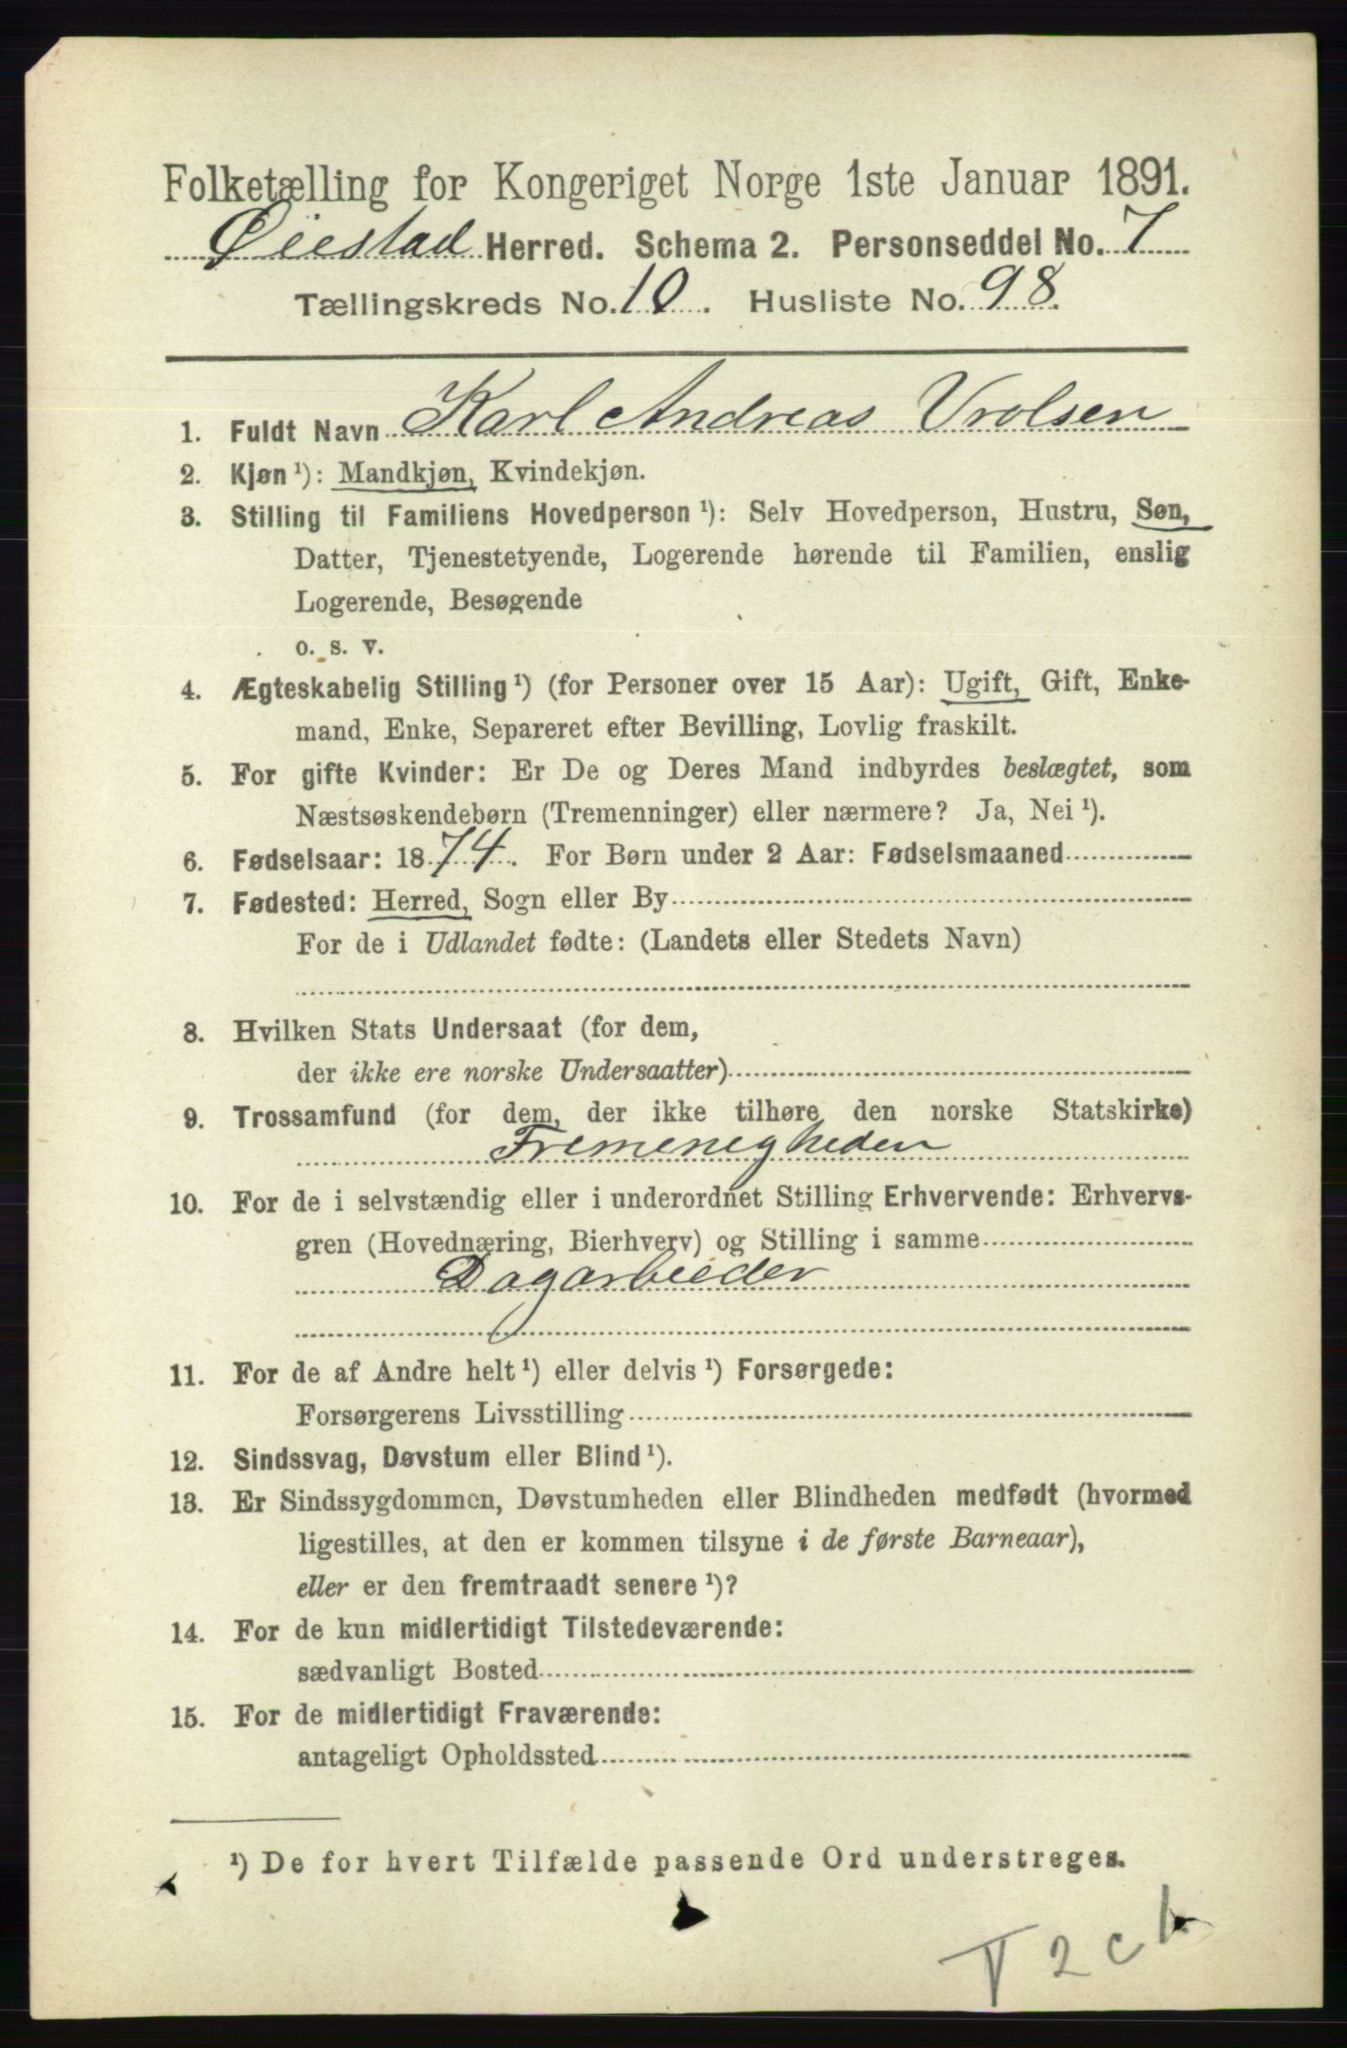 Folketælling for Kongeriget Norge 1ste Januar 1891.
Øiestad Herred. Schema 2. Personseddel No. 7
Tællingskreds No. 10. Husliste No. 98.
1. Fuldt Navn Karl Andreas Vrolsen
2. Kjøn ¹): Mandkjøn, Kvindekjøn.
3. Stilling til Familiens Hovedperson ¹): Selv Hovedperson, Hustru, Søn,
Datter, Tjenestetyende, Logerende hørende til Familien, enslig
Logerende, Besøgende
o. s. v.
4. Ægteskabelig Stilling ¹) (for Personer over 15 Aar): Ugift, Gift, Enke-
mand, Enke, Separeret efter Bevilling, Lovlig fraskilt.
5. For gifte Kvinder: Er De og Deres Mand indbyrdes beslægtet, som
Næstsøskendebørn (Tremenninger) eller nærmere? Ja, Nei ¹).
6. Fødselsaar: 1874. For Børn under 2 Aar: Fødselsmaaned
7. Fødested: Herred, Sogn eller By
For de i Udlandet fødte: (Landets eller Stedets Navn)
8. Hvilken Stats Undersaat (for dem,
der ikke ere norske Undersaatter)
9. Trossamfund (for dem, der ikke tilhøre den norske Statskirke)
Fremenegheden
10. For de i selvstændig eller i underordnet Stilling Erhvervende: Erhvervs-
gren (Hovednæring, Bierhverv) og Stilling i samme
Dagarbeider
11. For de af Andre helt ¹) eller delvis ¹) Forsørgede:
Forsørgerens Livsstilling
12. Sindssvag, Døvstum eller Blind ¹).
13. Er Sindssygdommen, Døvstumheden eller Blindheden medfødt (hvormed
ligestilles, at den er kommen tilsyne i de første Barneaar),
eller er den fremtraadt senere ¹)?
14. For de kun midlertidigt Tilstedeværende:
sædvanligt Bosted
15. For de midlertidigt Fraværende:
antageligt Opholdssted
¹) De for hvert Tilfælde passende Ord understreges.